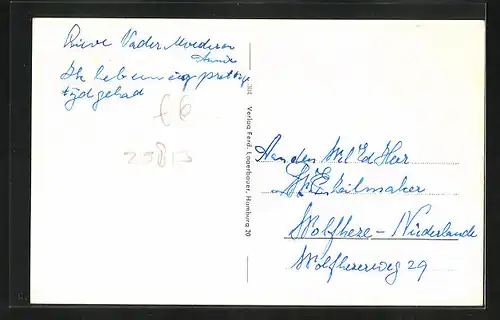 Lieve Vader Moeder en
Annie
Ik heb een erg prettige
tijd gehad
£6
25813
Verlag Ferd. Lagerbauer, Hamburg 20
Aan den Wel Ed Heer
Zeilmaker
Wolfheze - Niederlande
Wolfhezerweg 29